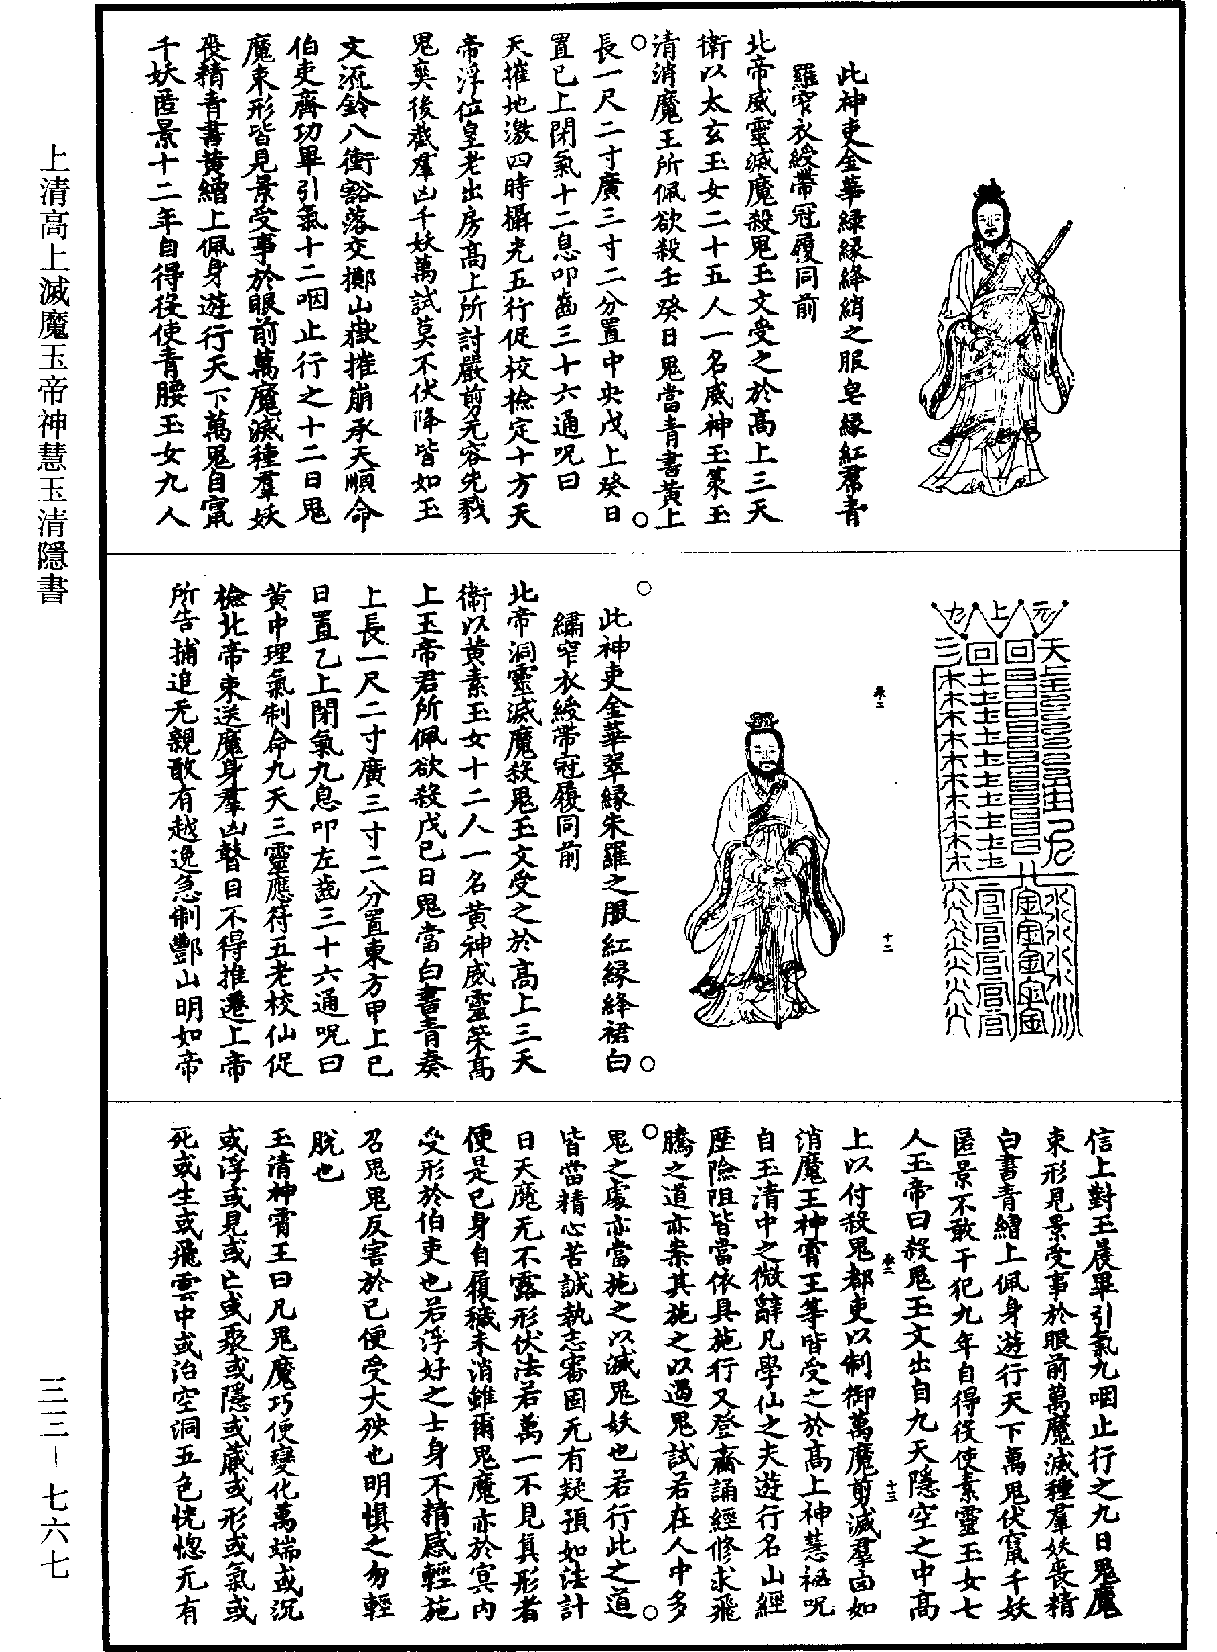 此神吏金華綠緣絳綃之服皂緣紅裙青
羅窄衣綬帶冠履同前
北帝威靈滅魔殺鬼玉文受之於高上三天
衛以太玄玉女二十五人一名威神玉策玉
清消魔王所佩欲殺壬癸日鬼當青書黃上
長一尺二寸廣三寸二分置中央戊上癸日
置已上閉氣十二息叩齒三十六通呪曰
天摧地激四時攝光五行促校檢定十方天
帝浮位皇老出房高上所討嚴前无容先戮
鬼奕後截羣凶千妖萬試莫不伏降皆如玉
文流鈴八衝豁落交擲山嶽摧崩承天順命
伯吏齊功畢引氣十二咽止行之十二日鬼
魔束形皆見景受事於眼前萬魔滅種羣妖
喪精青書黃繒上佩身遊行天下萬鬼自竄
千妖匿景十二年自得役使青腰玉女九人
元
上
九
天
水水水水水
金金金金金
官官官官官
火火火火火
卷二
十二
此神吏金華翠緣朱羅之服紅緣絳裙白
繡窄衣綬帶冠履同前
北帝洞靈滅魔殺鬼玉文受之於高上三天
衛以黃素玉女十二人一名黃神威靈策高
上玉帝君所佩欲殺戊巳日鬼當白書青奏
上長一尺二寸廣三寸二分置東方甲上巳
日置乙上閉氣九息叩左齒三十六通呪曰
黃中理氣制命九天三靈應符五老校仙促
檢北帝束送魔身羣凶瞽目不得推遷上帝
所告捕追无親敢有越逸急制酆山明如帝
信上對玉晨畢引氣九咽止行之九日鬼魔
束形見景受事於眼前萬魔滅種羣妖喪精
白書青繒上佩身遊行天下萬鬼伏竄千妖
匿景不敢干犯九年自得役使素靈玉女七
人玉帝曰殺鬼玉文出自九天隱空之中高
卷二
十三
上以付殺鬼都吏以制御萬魔剪滅羣凶如
消魔王神霄王等皆受之於高上神慧祕呪
自玉清中之微辭凡學仙之夫遊行名山經
歷險阻皆當依具施行又登齋誦經修求飛
騰之道亦案其施之以遏鬼試若在人中多
鬼之處亦當施之以滅鬼妖也若行此之道
皆當精心苦誠執志審固无有疑預如法計
日天魔无不露形伏法若萬一不見真形者
便是已身自履穢未消雖爾鬼魔亦於冥内
受形於伯吏也若浮好之士身不精感輕施
召鬼鬼反害於已便受大殃也明慎之勿輕
脫也
玉清神霄王曰凡鬼魔巧便變化萬端或沉
或浮或見或亡或聚或隱或藏或形或氣或
死或生或飛雲中或治空洞五色恍惚无有
上清高上滅魔玉帝神慧玉清隱書
三三－七六七